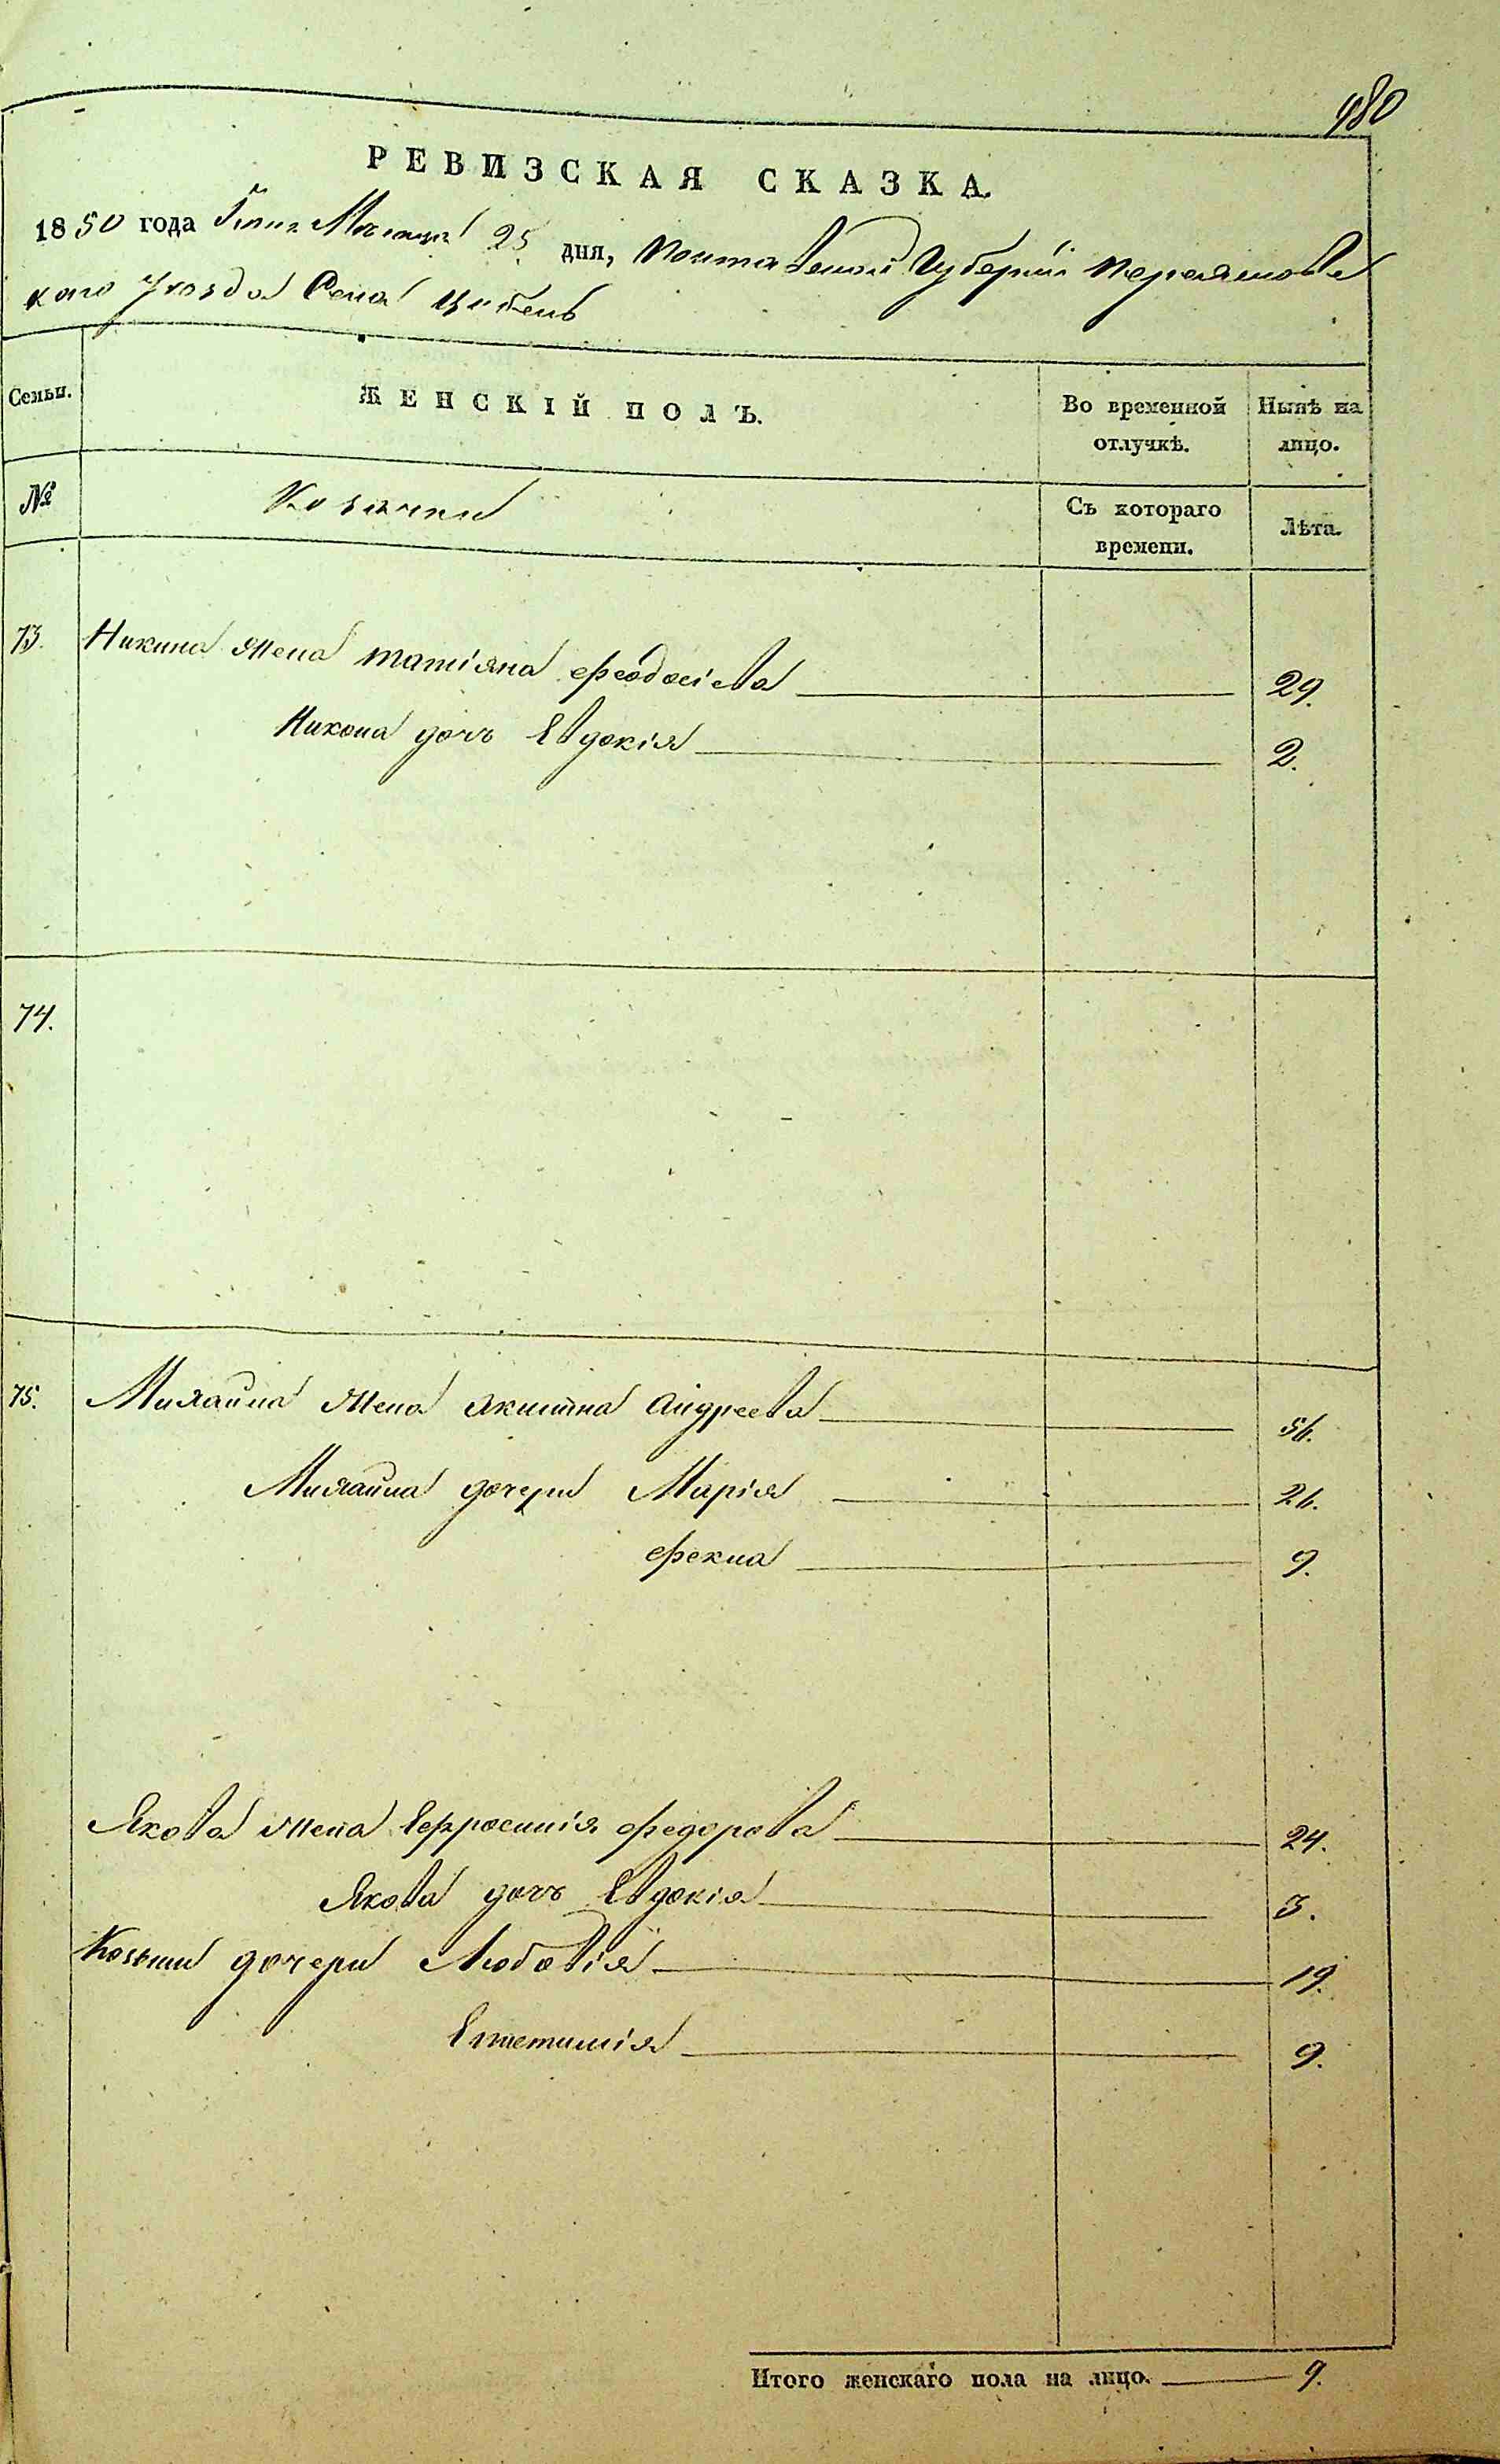 480
РЕВИЗСКАЯ СКАЗКА.
1850 года Мѣсяца 25 дня, Полтавской Губерніи Переяславс
каго уѣзда Села Цибель
Семьи. ЖЕНСКІЙ ПОЛЪ. Во временной отлучкѣ. Нынѣ на лицо.
№ Козачки Съ котораго времени. Лѣта.
73. Никина жена Татіяна Феодосіева 29.
Никона дочь Евдокія 2.
74.
75. Михайла жена Акилина Андреева 56.
Михайла дочери Марія 26.
Фекла 9.
Якова жена Евфросинія Федорова 24.
Якова дочь Евдокія 3.
Козьми дочери Любовія 19.
Епистимія 9.
Итого женскаго пола на лицо. 9.